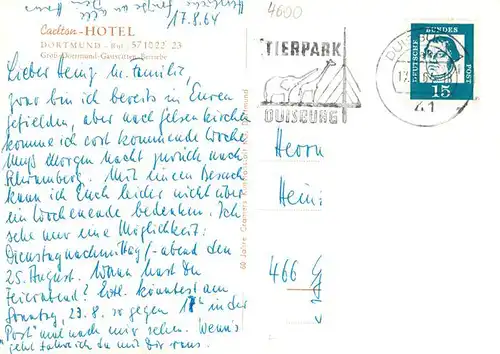 Herzliche Grüße an alle
17.8.64
Carlton-HOTEL
DORTMUND - Ruf 57 10 22 23
Groß-Dortmund-Gaststätten-Betriebe
Lieber Heinz m. Familie,
zwar bin ich bereits in Euren
Gefielden, aber nach Gelsenkirchen
komme ich erst kommende Woche
Muß morgen nacht zurück nach
Mit einem Besuch
kann ich Euch leider nicht über
ein Wochenende bedenken. Ich
sehe nur eine Möglichkeit:
Dienstagnachmittag/-abend den
25. August. Wann hast Du
Feierabend? Evtl. könntest am
Sonntag, 23.8. so gegen 18h in der
"Post" mal nach mir sehen. Wenn's
geht fahre ich dann mit Dir raus.
4600
TIERPARK
DUISBURG
DUISBURG
41
DEUTSCHE BUNDESPOST
15
Herrn
Heinz
466 G